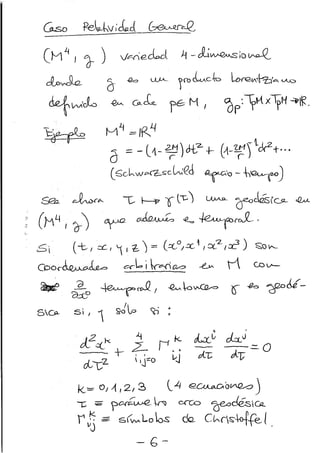 Caso Relatividad General
(M⁴, g) variedad 4-dimensional
donde g es un producto Lorentziano
definido en cada p∈M, gp: TpM×TpM→ℝ.
Ejemplo M⁴ = ℝ⁴
g = -(1 - 2M/r)dt² + (1 - 2M/r)⁻¹dr² + ...
(Schwarzschild espacio-tiempo)
Sea ahora τ ↦ γ(τ) una geodésica en
(M⁴, g) que además es temporal.
Si (t, x, y, z) = (x⁰, x¹, x², x³) son
coordenadas arbitrarias en M con
∂/∂x⁰ temporal, entonces γ es geodé-
sica si, y sólo si:
d²xᵏ/dτ² + Σ⁴ᵢ,ⱼ₌₀ Γᵏᵢⱼ dxⁱ/dτ dxʲ/dτ = 0
k = 0, 1, 2, 3 (4 ecuaciones)
τ = parámetro arco geodésica
Γᵏᵢⱼ = símbolos de Christoffel.
- 6 -